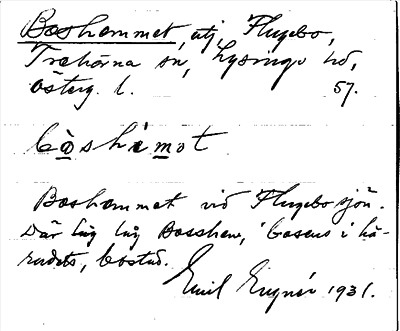 Boshemmet, utj, Flugebo,
Trehörna sn, Lysings hd,
Österg. l. 57.
bòshémot
Boshemmet vid Flugebosjön.
Där låg låg Bosshew, 'bosens i hä-
radets, bostad.
Emil Eugnér 1931.